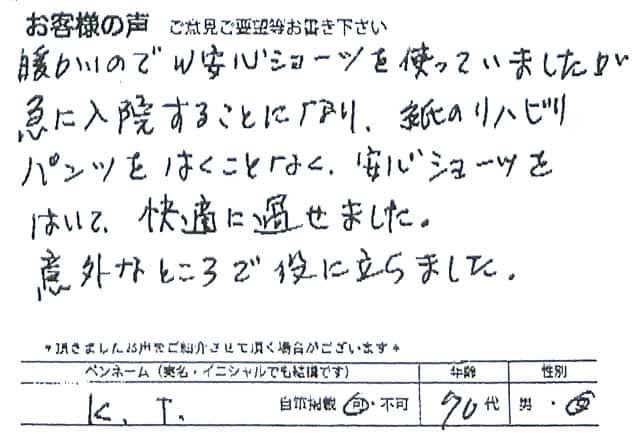 お客様の声 ご意見ご要望等お書き下さい
暖かいのでW安心ショーツを使っていましたが
急に入院することになり、紙のリハビリ
パンツをはくことなく、安心ショーツを
はいて、快適に過せました。
意外なところで役に立ちました。
*頂きましたお声をご紹介させて頂く場合がございます*
ペンネーム（実名・イニシャルでも結構です） 年齢 性別
K.T. 自筆掲載 可・不可 70代 男・女